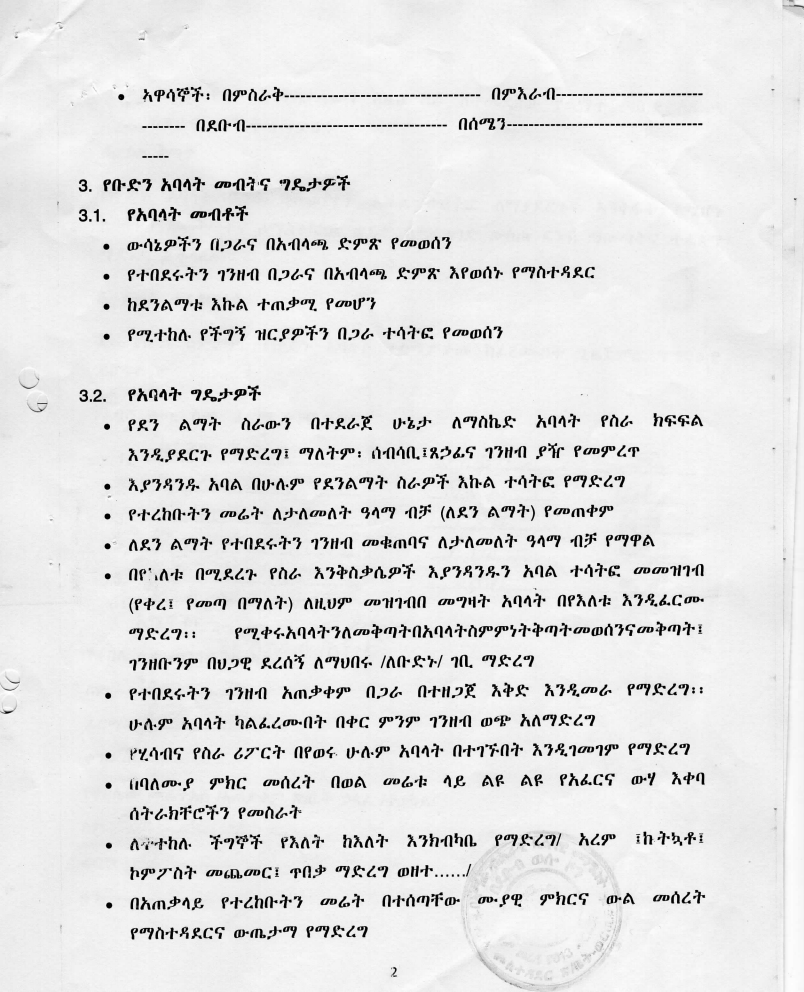 • ኣዋሳኞች፡ በምስራቅ------------------------------------ በምእራብ---------------------------
-------- በደቡብ------------------------------------- በሰሜን------------------------------------
-----
3. የቡድን አባላት መብትና ግዴታዎች
3.1. የአባላት መብቶች
• ውሳኔዎችን በጋራና በአብላጫ ድምጽ የመወሰን
• የተበደሩትን ገንዘብ በጋራና በአብላጫ ድምጽ እየወሰኑ የማስተዳደር
• ከደንልማቱ እኩል ተጠቃሚ የመሆን
• የሚተከሉ የችግኝ ዝርያዎችን በጋራ ተሳትፎ የመወሰን
3.2. የአባላት ግዴታዎች
• የደን ልማት ስራውን በተደራጀ ሁኔታ ለማስኬድ አባላት የስራ ክፍፍል
እንዲያደርጉ የማድረግ፤ ማለትም፡ ሰብሳቢ፤ጸኃፊና ገንዘብ ያዥ የመምረጥ
• እያንዳንዱ አባል በሁሉም የደንልማት ስራዎች እኩል ተሳትፎ የማድረግ
• የተረከቡትን መሬት ለታለመለት ዓላማ ብቻ (ለደን ልማት) የመጠቀም
• ለደን ልማት የተበደሩትን ገንዘብ መቁጠባና ለታለመለት ዓላማ ብቻ የማዋል
• በየእለቱ በሚደረጉ የስራ እንቅስቃሴዎች እያንዳንዱን አባል ተሳትፎ መመዝገብ
(የቀረ፤ የመጣ በማለት) ለዚህም መዝገብበ መግዛት አባላት በየእለቱ እንዲፈርሙ
ማድረግ፡፡ የሚቀሩአባላትንለመቅጣትበአባላትስምምነትቅጣትመወሰንናመቅጣት፤
ገንዘቡንም በህጋዊ ደረሰኝ ለማህበሩ /ለቡድኑ/ ገቢ ማድረግ
• የተበደሩትን ገንዘብ አጠቃቀም በጋራ በተዘጋጀ እቅድ እንዲመራ የማድረግ፡፡
ሁሉም አባላት ካልፈረሙበት በቀር ምንም ገንዘብ ወጭ አለማድረግ
• የሂሳብና የስራ ሪፖርት በየወሩ ሁሉም አባላት በተገኙበት እንዲገመገም የማድረግ
• በባለሙያ ምክር መሰረት በወል መሬቱ ላይ ልዩ ልዩ የአፈርና ውሃ እቀባ
ሰትራክቸሮችን የመስራት
• ለተተከሉ ችግኞች የእለት ከእለት እንክብካቤ የማድረግ/ አረም ፤ኩትኳቶ፤
ኮምፖስት መጨመር፤ ጥበቃ ማድረግ ወዘተ……/
• በአጠቃላይ የተረከቡትን መሬት በተሰጣቸው ሙያዊ ምክርና ውል መሰረት
የማስተዳደርና ውጤታማ የማድረግ
2